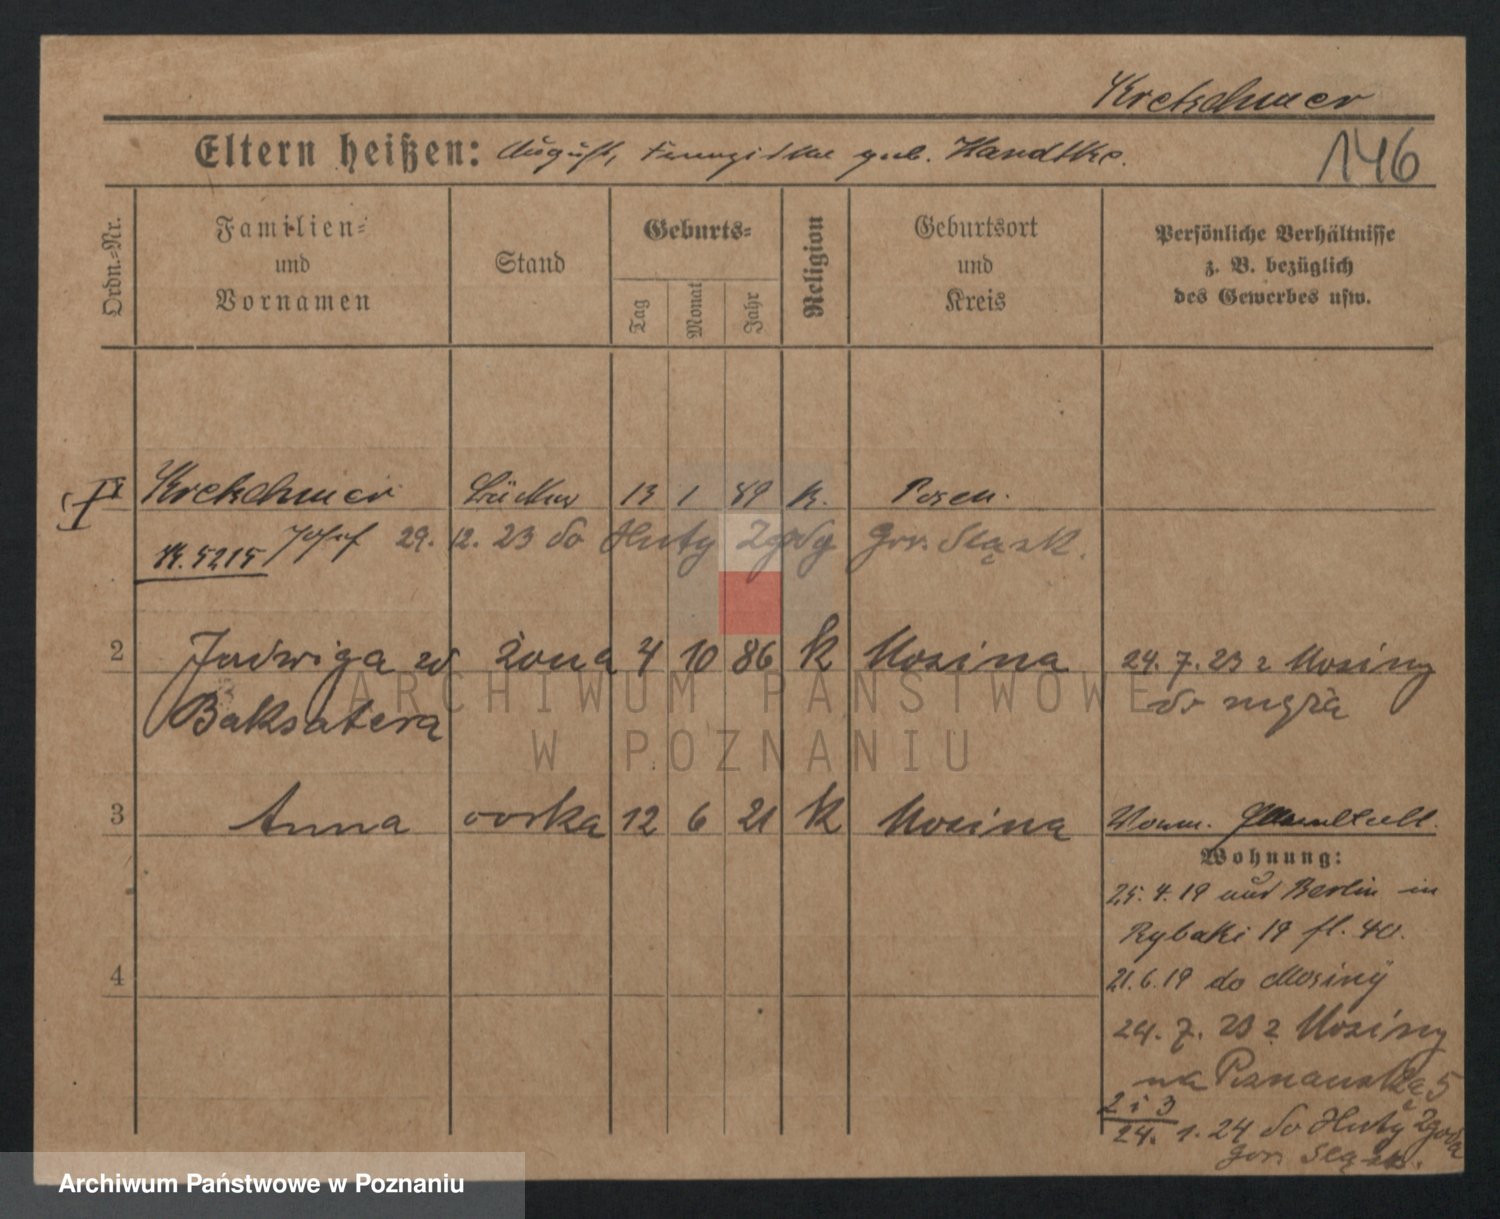 Kretschmer
Eltern heißen: August, Franziska geb. Handtke.
146
Ordn.-Nr.
Familien-
und
Vornamen
Stand
Geburts-
Tag
Monat
Jahr
Religion
Geburtsort
und
Kreis
Persönliche Verhältnisse
z. B. bezüglich
des Gewerbes usw.
Kretschmer 13 1 89 k. Posen.
5215 Josef 29. 12. 23 do Huty Zgody Gór. Śląsk.
2 Jadwiga zd żona 4 10 86 k Mosina 24. 7. 23 z Mosiny
Baksatera do męża
3 Anna córka 12 6 21 k Mosina
Wohnung:
25. 4. 19 aus Berlin in
Rybaki 19 fl. 40.
21. 6. 19 do Mosiny
4
24. 7. 23 z Mosiny
na Poznańską 5
2 i 3
24. 1. 24 do Huty Zgoda
Gór. Śląsk.
ARCHIWUM PAŃSTWOWE
W POZNANIU
Archiwum Państwowe w Poznaniu